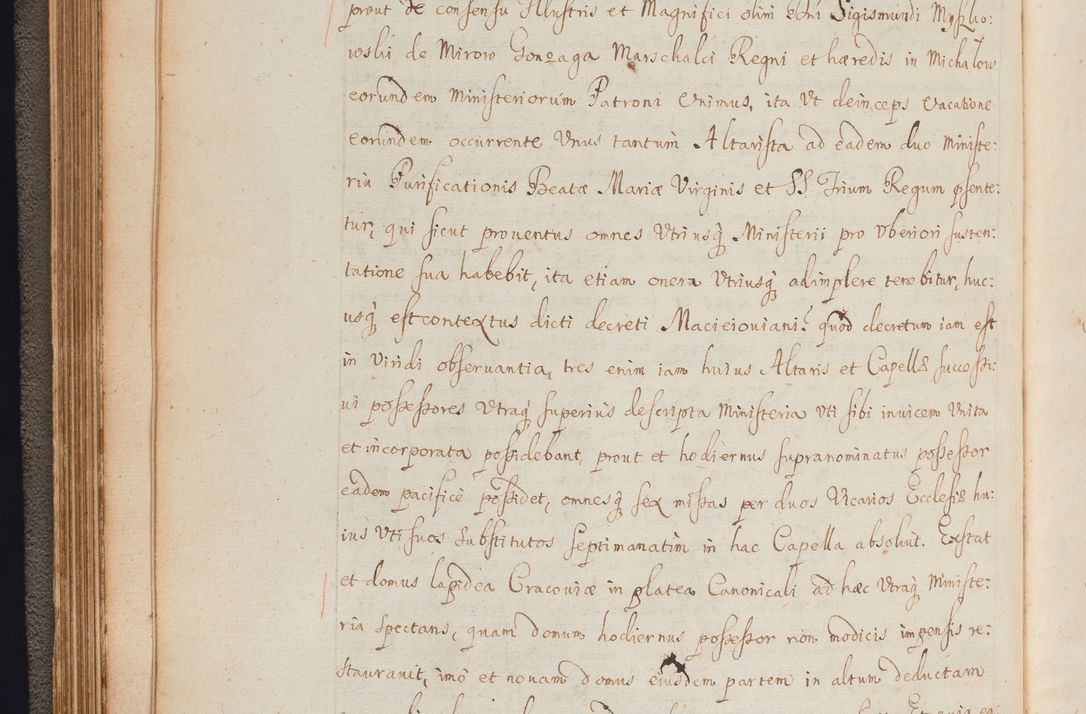 prout de consensu Illustris et Magnifici olim Dñi Sigismundi Myszko:
wskii de Mirow Gonzaga Marschalci Regni et hæredis in Michałow
eorundem Ministeriorum Patroni Vnimus, ita Vt deinceps Vacatione
eorundem occurrente Vnus tantum Altarista ad eadem duo Ministe:
ria Purificationis Beatæ Mariæ Virginis et SS Trium Regum psente:
tur, qui sicut prouentus omnes Vtriusq Ministerii pro Vberiori susten:
tatione sua habebit, ita etiam onera Vtriusq adimplere tenebitur, huc:
usq est contextus dicti decreti Macieiouiani. quod decretum iam est
in Viridi obseruantia, tres enim iam huius Altaris et Capellæ successi:
ui possessores Vtraq superius descripta Ministeria Vti sibi inuicem Vnita
et incorporata possidebant, prout et hodiernus supranominatus possessor
eadem pacificè possidet, omnesq sex missas per duos Vicarios Ecclesiæ hu:
ius Vti suos Substitutos septimanatim in hac Capella absoluit. Exstat
et domus lapidea Cracouiæ in platea Canonicali ad hæc Vtraq Ministe:
ria spectans, quam domum hodiernus possessor non modicis impensis re:
staurauit, imò et nouam domus eiusdem partem in altum deductam